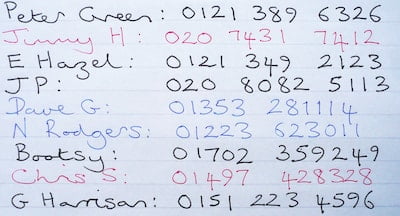 Peter Green: 0121 389 6326
Jimmy H: 020 7431 7412
E Hazel: 0121 349 2123
J P: 020 8082 5113
Dave G: 01353 281114
N Rodgers: 01223 623011
Bootsy: 01702 359249
Chris S: 01497 428328
G Harrison: 0151 223 4596